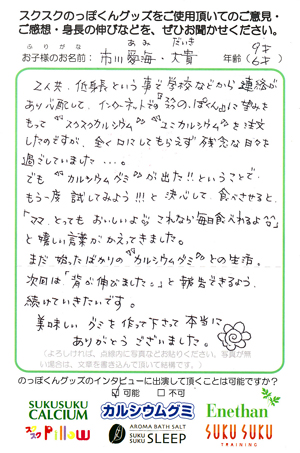 スクスクのっぽくんグッズをご使用頂いてのご意見・
ご感想・身長の伸びなどを、ぜひお聞かせください。
ふりがな あみ だいき 9才
お子様のお名前 市川愛海・大貴 年齢(6才)
2人共、低身長という事で学校などから連絡が
あり心配して、インターネットで のっぽくん に望みを
もって "スクスクカルシウム" "ユニカルシウム" を注文
したのですが、全く口にしてもらえず残念な日々を
過ごしていました…。
でも "カルシウムグミ" が出た!!ということで、
もう一度 試してみよう!!! と決心して、食べさせると、
「ママ、とってもおいしいよ これなら毎日食べれるよ」
と嬉しい言葉がかえってきました。
まだ始ったばかりの "カルシウムグミ" との生活。
次回は「背が伸びました」と報告できるよう、
続けていきたいです。
美味しいグミを作って下さって本当に
ありがとうございました。
(よろしければ、点線内に写真などをお貼りください。写真が無
い場合は、文章を書き込んで頂いて結構です。)
のっぽくんグッズのインタビューに出演して頂くことは可能ですか?
☑可能 □不可
SUKUSUKU CALCIUM
カルシウムグミ
Enethan
スクスク Pillow
AROMA BATH SALT
SUKU SUKU SLEEP
SUKU SUKU
TRAINING